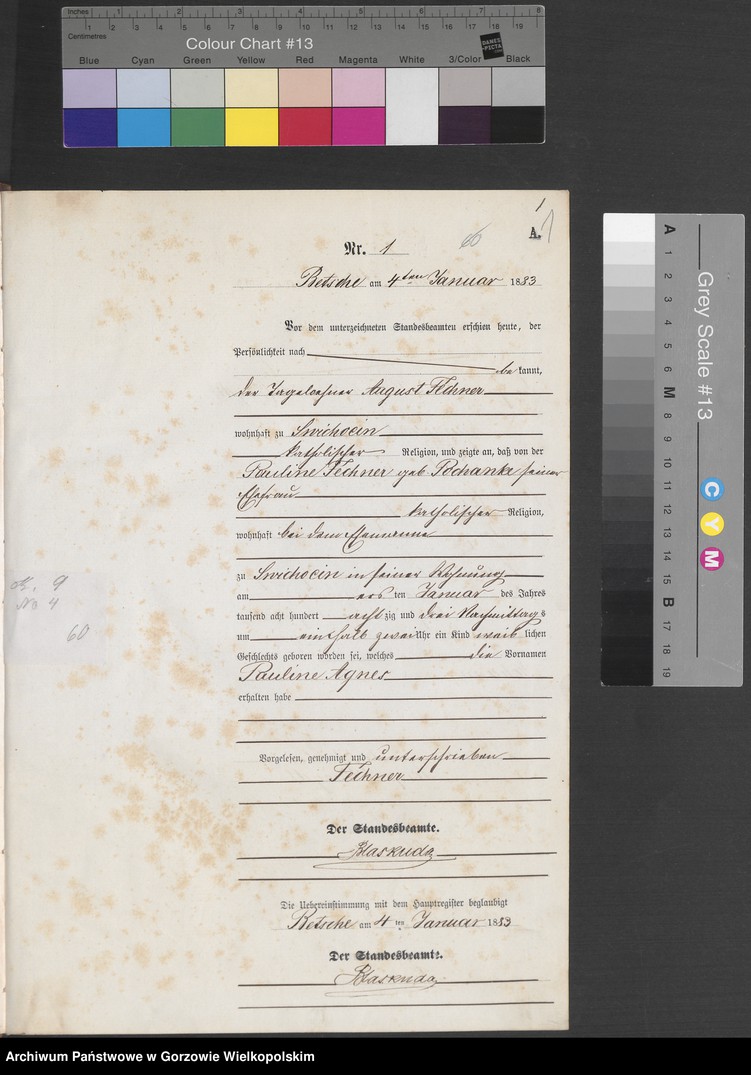 Inches 1 2 3 4 5 6 7 8
Centimetres 1 2 3 4 5 6 7 8 9 10 11 12 13 14 15 16 17 18 19
Colour Chart #13
DANES
-PICTA
.COM
Blue Cyan Green Yellow Red Magenta White 3/Color Black
Grey Scale #13
A 1 2 3 4 5 6 M 8 9 10 11 12 13 14 15 B 17 18 19
C Y M
1
A.
Nr. 1
Betsche am 4ten Januar 1883
Vor dem unterzeichneten Standesbeamten erschien heute, der
Persönlichkeit nach
be kannt,
der Tageloehner August Fechner
wohnhaft zu Swichocin
katholischer Religion, und zeigte an, daß von der
Pauline Fechner geb Pochanke seiner
Ehefrau
katholischer Religion,
wohnhaft bei dem Ehemanne
zu Swichocin in seiner Wohnung
am ers ten Januar des Jahres
tausend acht hundert acht zig und drei Nachmittags
um ein halb zwei Uhr ein Kind weib lichen
Geschlechts geboren worden sei, welches die Vornamen
Pauline Agnes
erhalten habe
9
No 4
60
Vorgelesen, genehmigt und unterschrieben
Fechner
Der Standesbeamte.
Blaskuda
Die Uebereinstimmung mit dem Hauptregister beglaubigt
Betsche am 4 ten Januar 1883
Der Standesbeamte.
Blaskuda
Archiwum Państwowe w Gorzowie Wielkopolskim